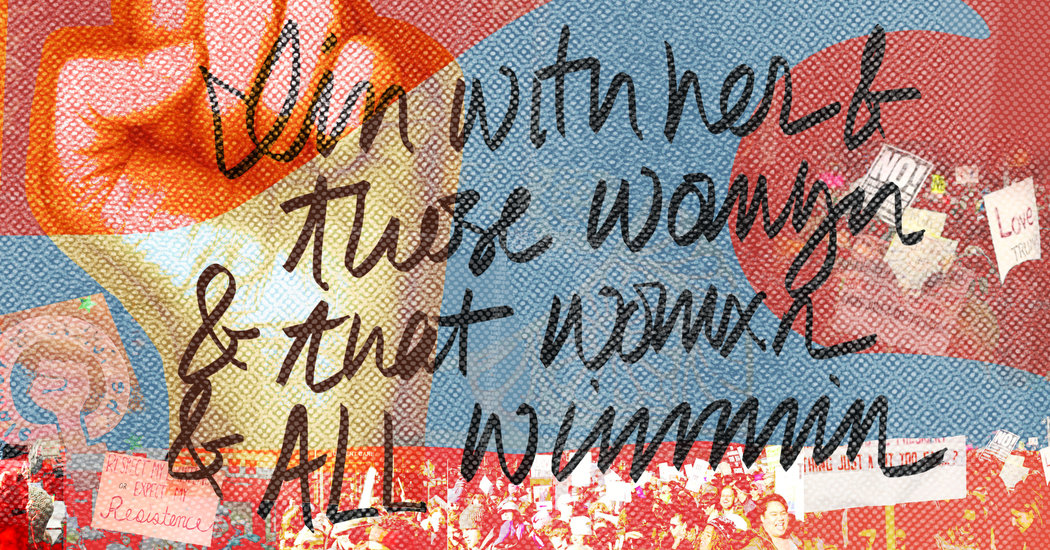 I'm with her &
these womyn
& that womxn
& ALL wimmin
NO!
Love
RESPECT MY
OR EXPECT MY
Resistence
JUST A